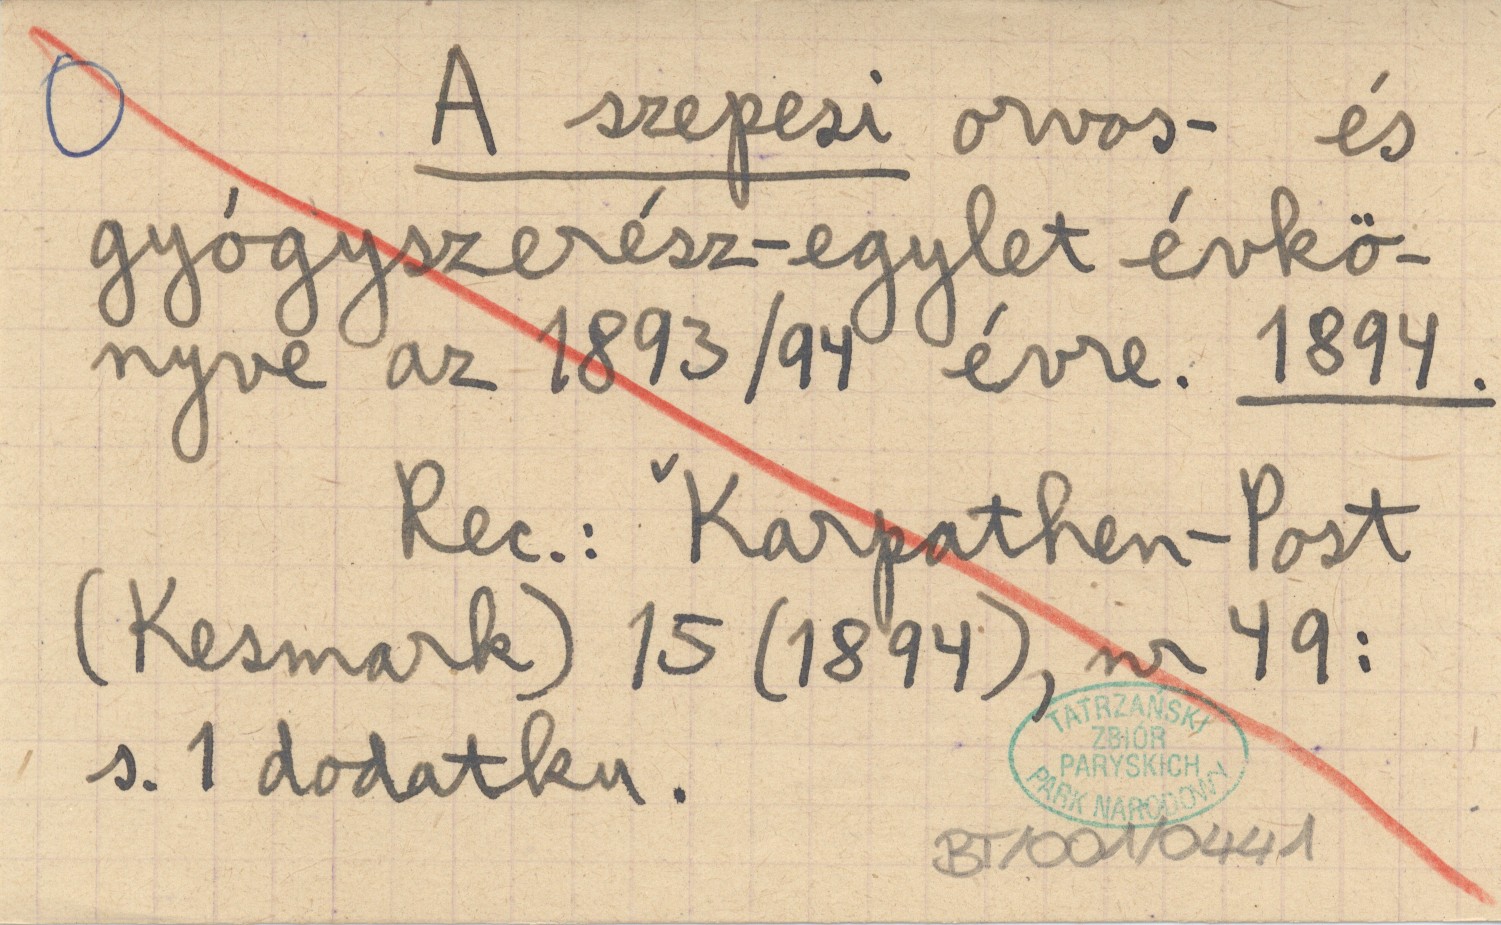 A szepesi orvos- és
gyógyszerész-egylet évkö-
nyve az 1893/94 évre. 1894.
Rec.: ˇKarpathen-Post
(Kesmark) 15 (1894), nr 49:
s. 1 dodatku.
TATRZAŃSKI
ZBIÓR
PARYSKICH
PARK NARODOWY
BT/001/0441